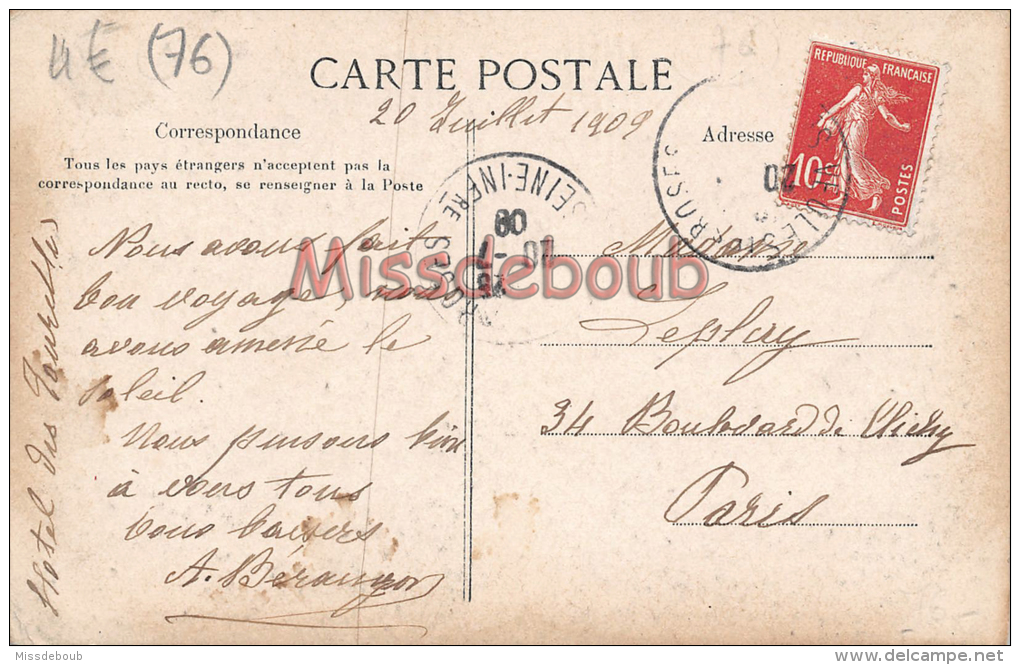 4€ (76)
CARTE POSTALE
20 Juillet 1909
Correspondance
Adresse
Tous les pays étrangers n'acceptent pas la
correspondance au recto, se renseigner à la Poste
REPUBLIQUE FRANÇAISE
10
POSTES
SEINE-INFRE
09
Nous avons fait
bon voyage, nous
avons amené le
soleil.
Nous pensons bien
à vous tous
bons baisers
A. Béranger
Hotel des Tourelles
Madame
Leplay
34 Boulevard de Clichy
Paris
Missdeboub
Missdeboub
http://www.delcampe.net